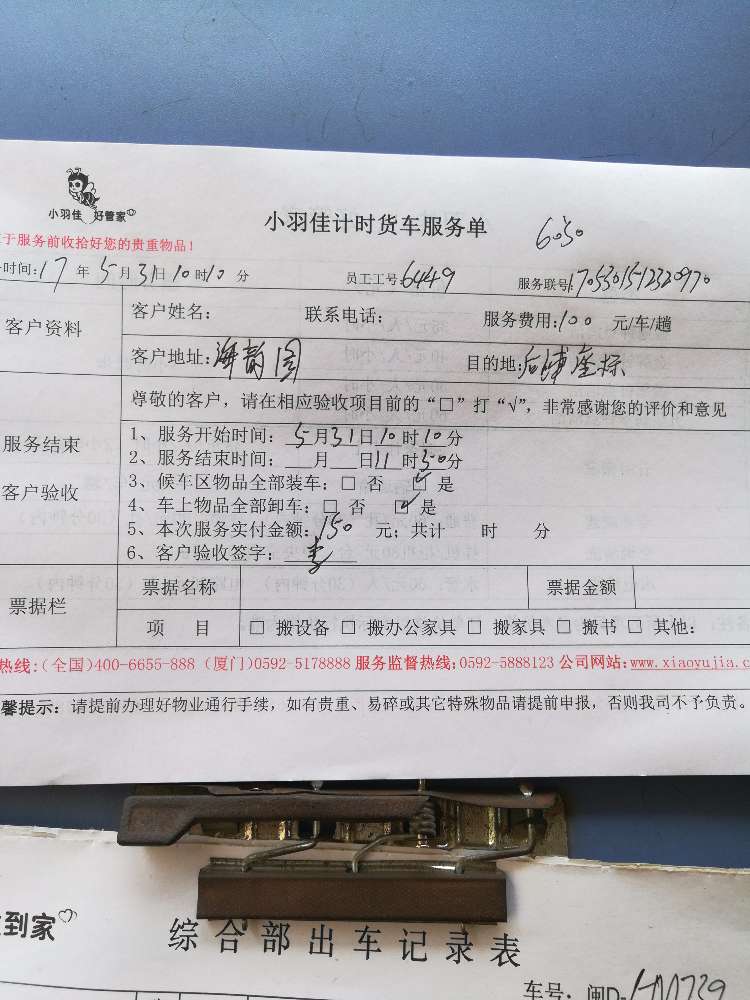 小羽佳 好管家
小羽佳计时货车服务单
6050
于服务前收拾好您的贵重物品！
时间: 17 年 5月31日10时10 分 员工工号 6449 服务联号
客户资料
客户姓名： 联系电话： 服务费用:100 元/车/趟
客户地址: 目的地:
尊敬的客户，请在相应验收项目前的“□”打“√”，非常感谢您的评价和意见
服务结束
客户验收
1、服务开始时间: 5月31日10时10分
2、服务结束时间: ___月___日11时50分
3、候车区物品全部装车: □ 否 ☑ 是
4、车上物品全部卸车: □ 否 ☑ 是
5、本次服务实付金额: 150 元; 共计 时 分
6、客户验收签字: 李
票据栏
票据名称 票据金额
项 目 □ 搬设备 □ 搬办公家具 □ 搬家具 □ 搬书 □ 其他:
热线:(全国)400-6655-888 (厦门)0592-5178888 服务监督热线:0592-5888123 公司网站:www.xiaoyujia.c
馨提示: 请提前办理好物业通行手续，如有贵重、易碎或其它特殊物品请提前申报，否则我司不予负责。
到家
综合部出车记录表
车号: 闽D